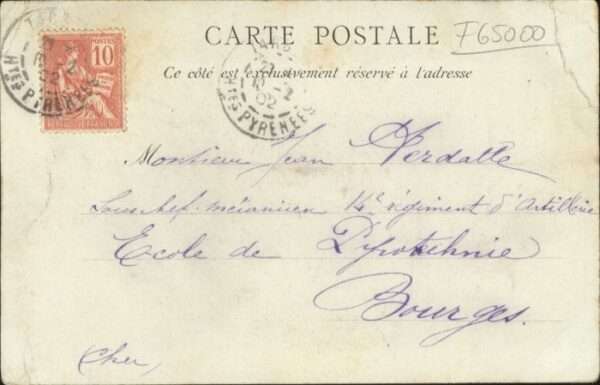 CARTE POSTALE
F65000
Ce côté est exclusivement réservé à l'adresse
POSTES
10
TARBES
HTES PYRÉNÉES
02
Monsieur Jean Verdalle
Sous chef mécanicien 14e régiment d'Artillerie
Ecole de Pyrotechnie
Bourges.
Cher